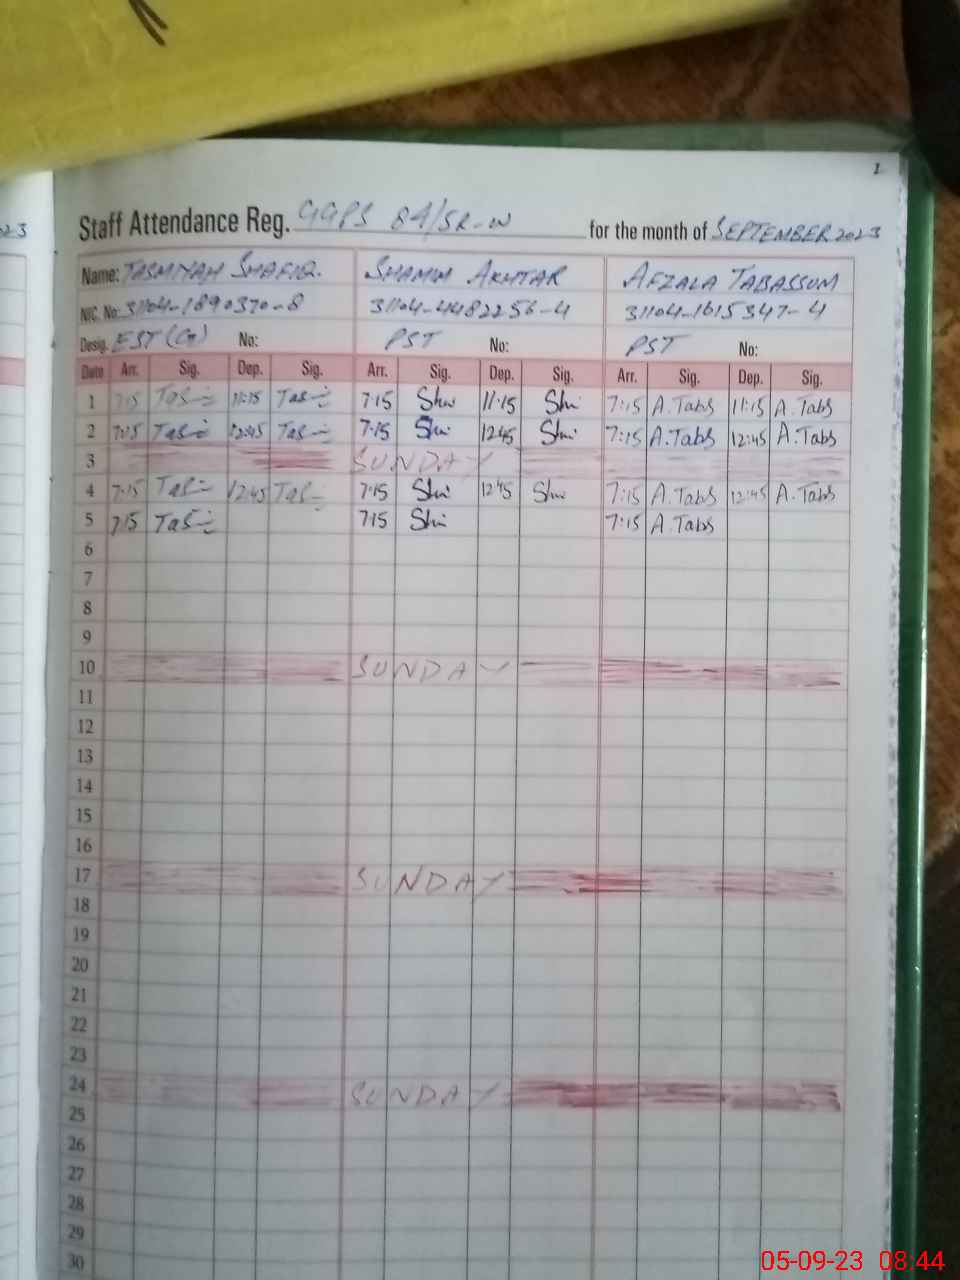 1
023
Staff Attendance Reg. GGPS 84/5R-W for the month of SEPTEMBER 2023
Name: TASMIYAH SHAFIQ. SHAMIM AKHTAR AFZALA TABASSUM
NIC. No: 31104-1890370-8 31104-4482256-4 31104-1615347-4
Desig. EST (Gn) No: PST No: PST No:
Date Arr. Sig. Dep. Sig. Arr. Sig. Dep. Sig. Arr. Sig. Dep. Sig.
1 7:15 11:15 7:15 11:15 7:15 A.Tabs 11:15 A.Tabs
2 7:15 12:45 7:15 12:45 7:15 A.Tabs 12:45 A.Tabs
3 SUNDAY
4 7:15 12:45 7:15 12:45 7:15 A.Tabs 12:45 A.Tabs
5 7:15 7:15 7:15 A.Tabs
6
7
8
9
10 SUNDAY
11
12
13
14
15
16
17 SUNDAY
18
19
20
21
22
23
24 SUNDAY
25
26
27
28
29
30
05-09-23 08:44